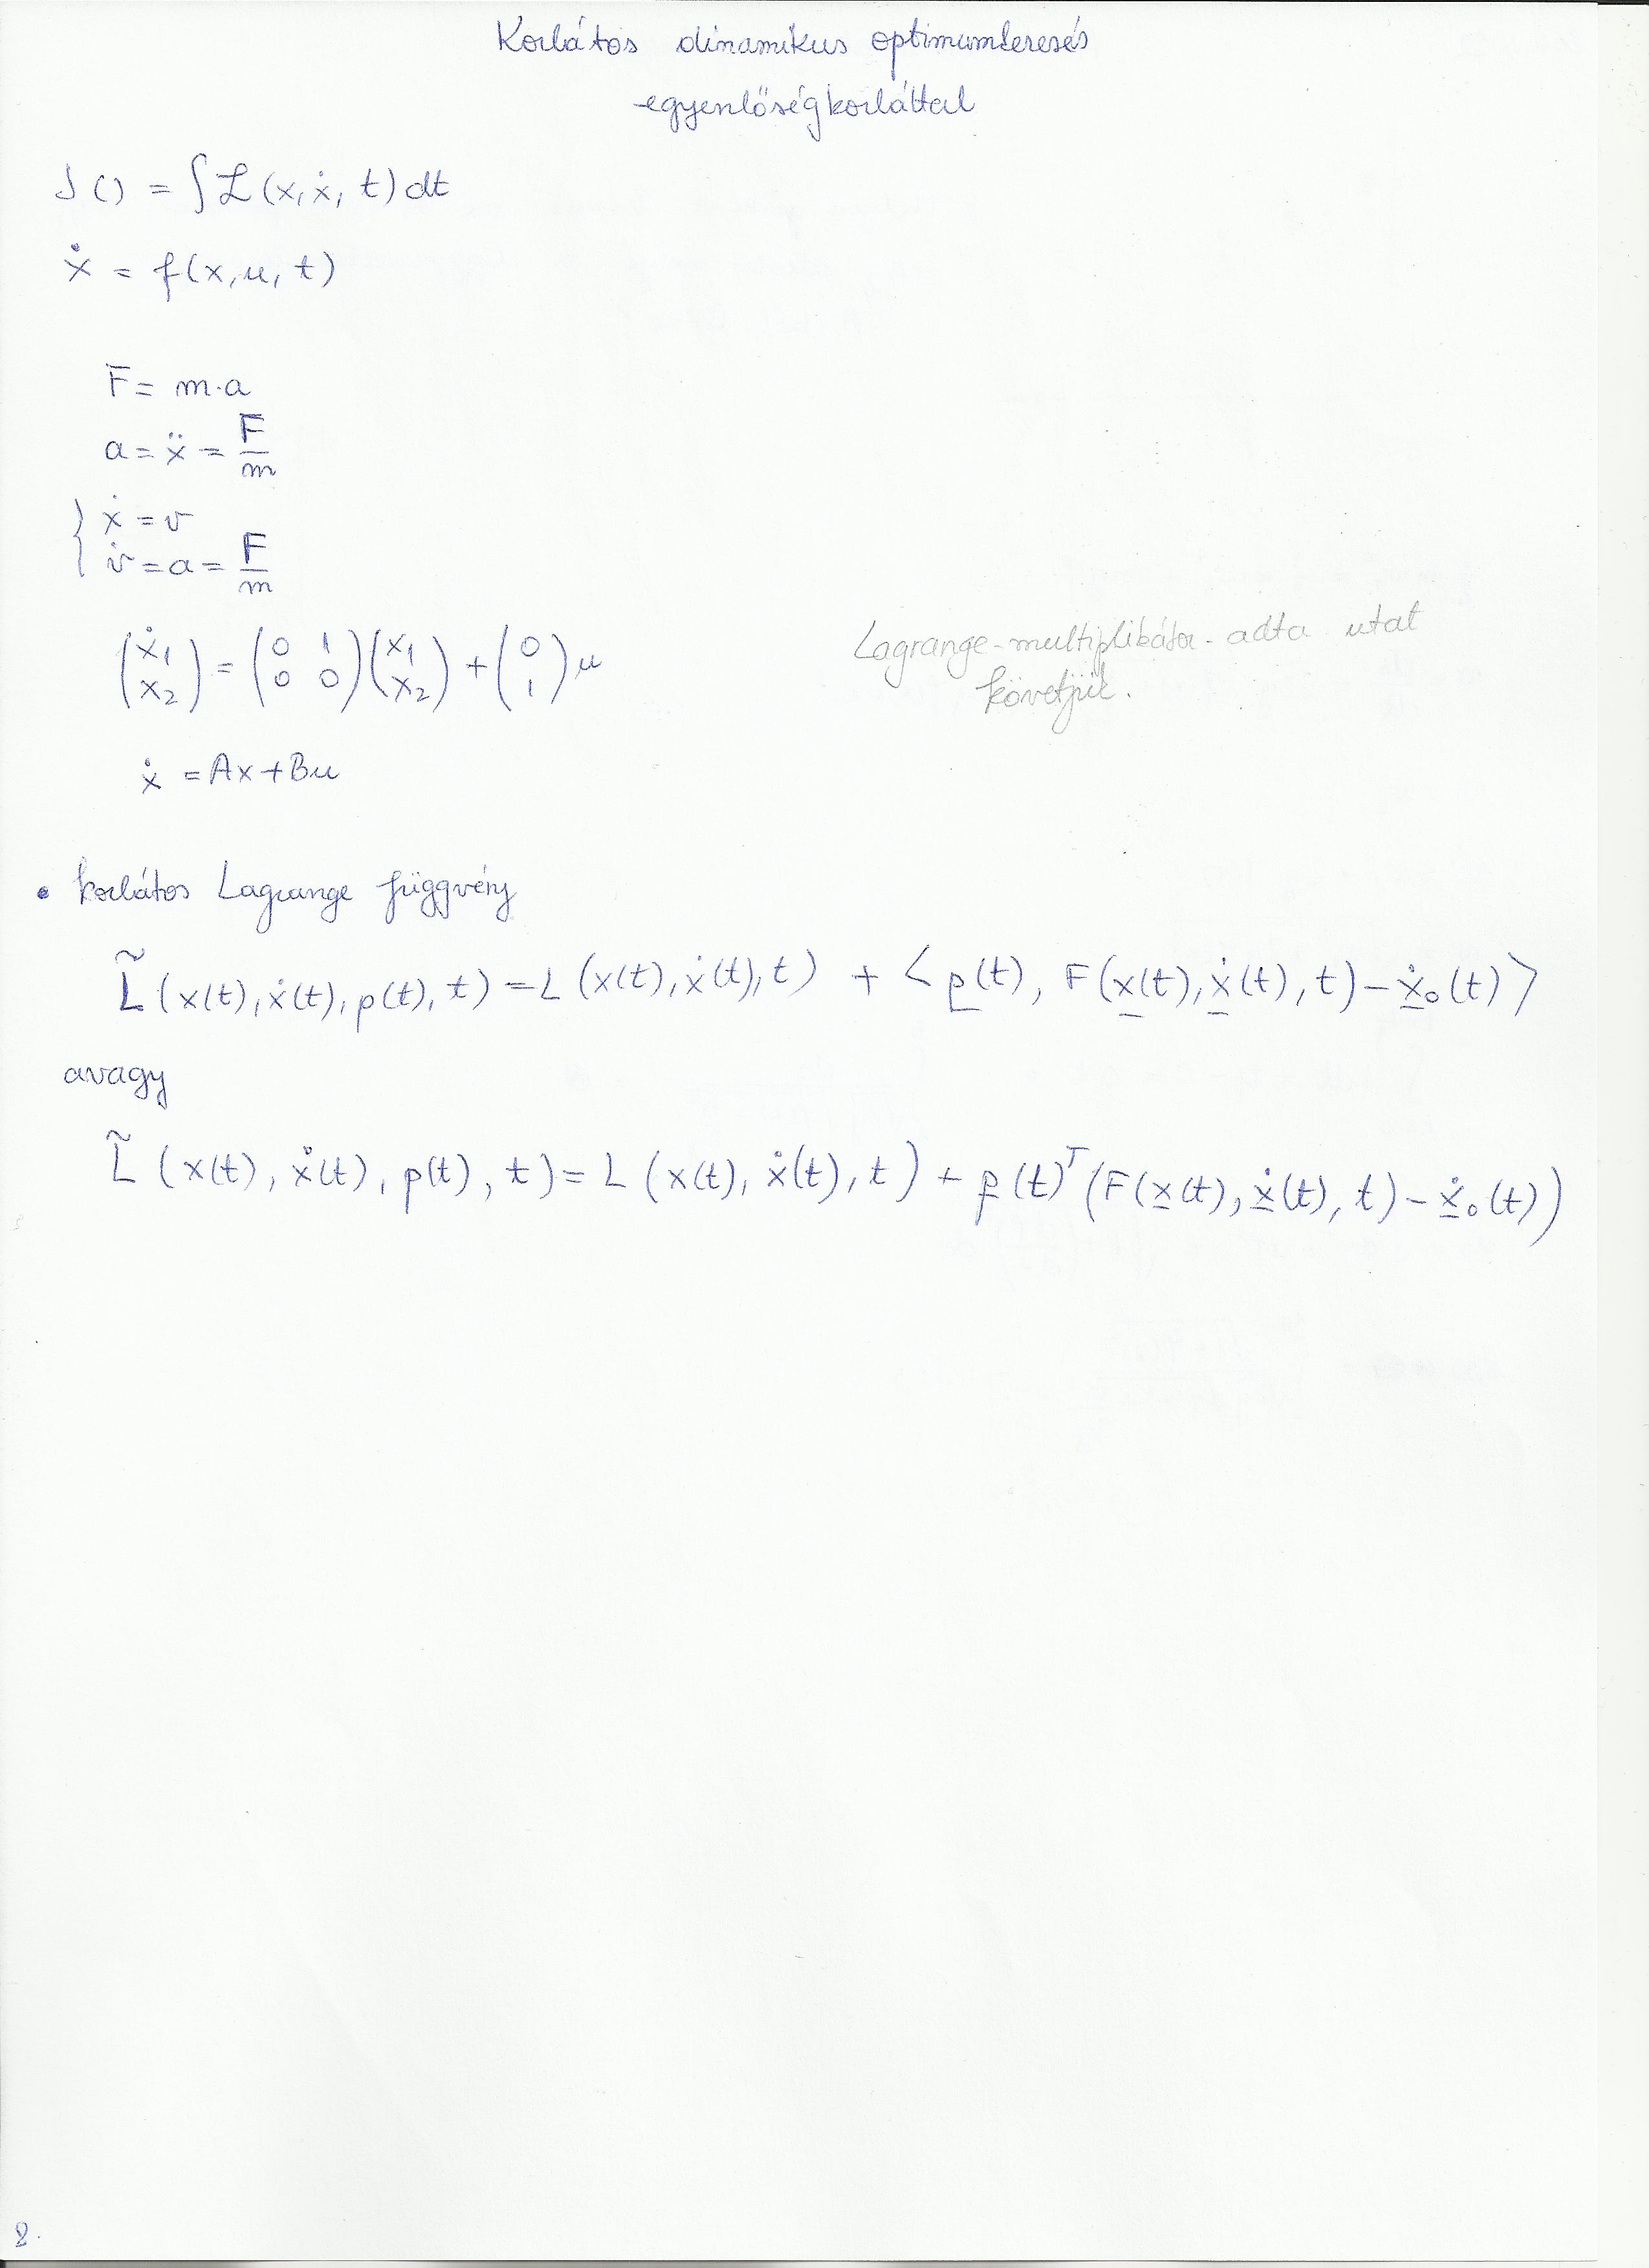 Korlátos dinamikus optimumkeresés
egyenlőségkorláttal
J() = ∫ℒ(x, ẋ, t)dt
ẋ = f(x, u, t)
F = m·a
a = ẍ = F/m
{ ẋ = v
v̇ = a = F/m
(ẋ₁ ẋ₂) = (0 1 0 0)(x₁ x₂) + (0 1)u
Lagrange-multiplikátor-adta utat
követjük.
ẋ = Ax + Bu
• korlátos Lagrange függvény
L̃(x(t), ẋ(t), p(t), t) = L(x(t), ẋ(t), t) + <p(t), F(x(t), ẋ(t), t) - ẋ₀(t)>
avagy
L̃(x(t), ẋ(t), p(t), t) = L(x(t), ẋ(t), t) + p(t)ᵀ(F(x(t), ẋ(t), t) - ẋ₀(t))
2.